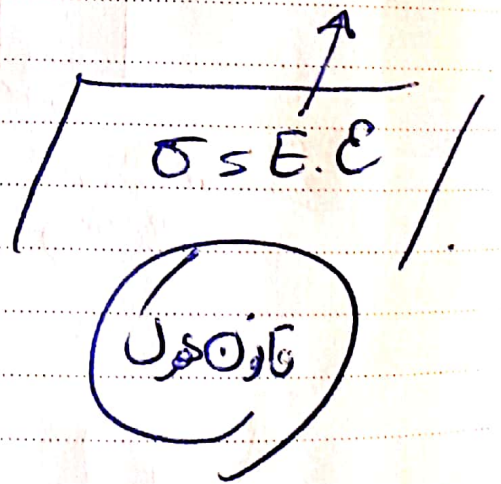 σ = E.ε
قانون هوک